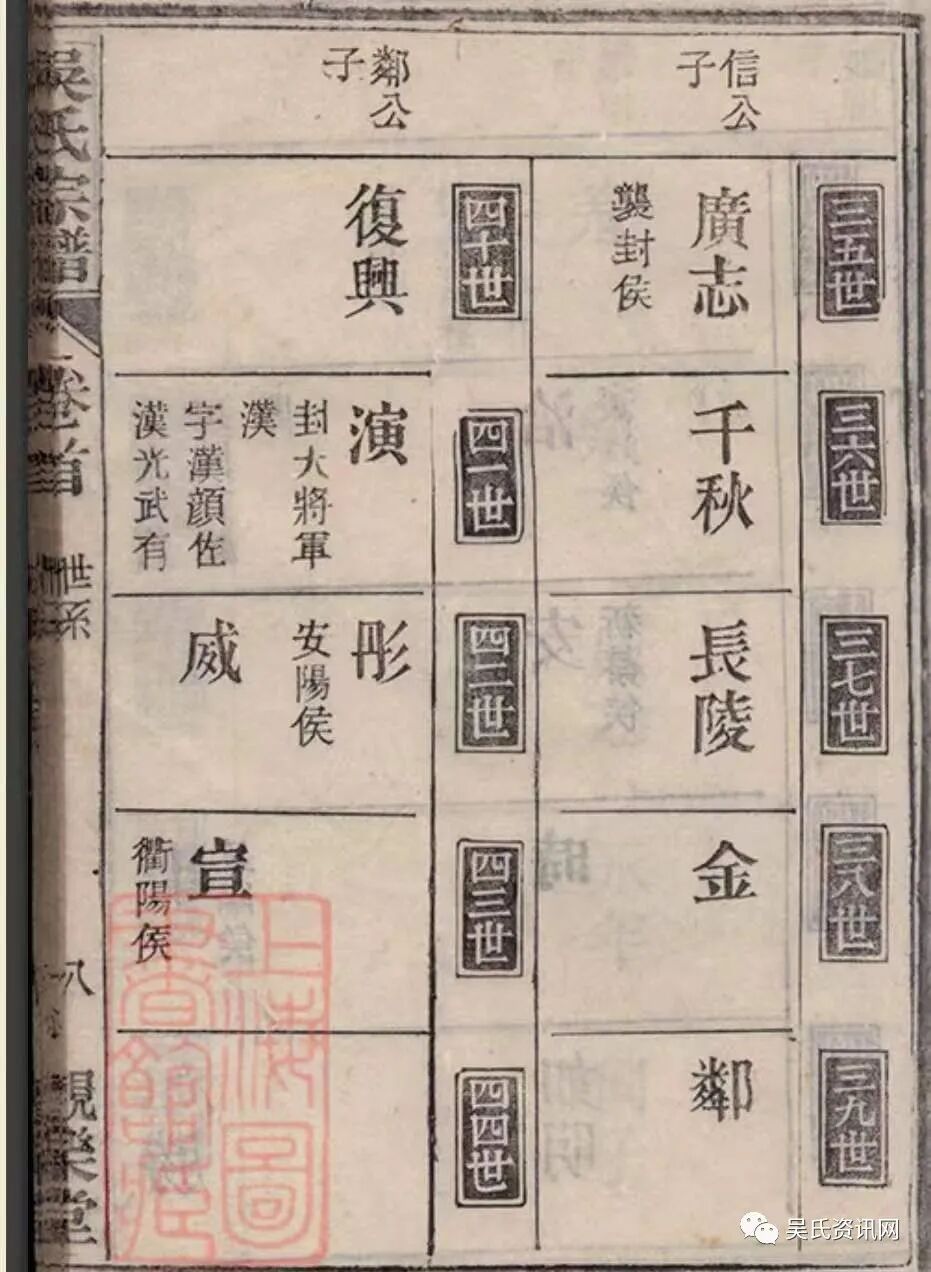 信公
子
三五世
廣志
襲封侯
三六世
千秋
三七世
長陵
三八世
金
三九世
鄰
鄰公
子
四十世
復興
四一世
演
封大將軍
漢
字漢顔佐
漢光武有
四二世
彤
安陽侯
威
四三世
宣
衢陽侯
四四世
吳氏宗譜
卷首
世系
八
上海圖
書館藏
吴氏资讯网